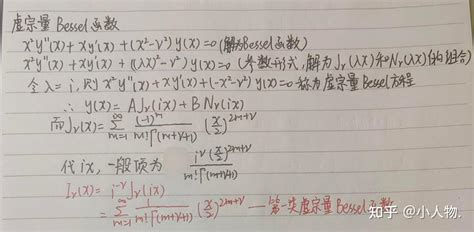 虚宗量Bessel函数
x²y''(x)+xy'(x)+(x²-ν²)y(x)=0 (解为Bessel函数)
x²y''(x)+xy'(x)+((λx)²-ν²)y(x)=0 (参数形式,解为Jν(λx)和Nν(λx)的组合)
令λ=i, 则x²y''(x)+xy'(x)+(-x²-ν²)y(x)=0 称为虚宗量Bessel方程
∴ y(x)=AJν(ix)+BNν(ix)
而Jν(x)=∑_{m=1}^{∞} (-1)^m/(m!Γ(m+ν+1)) (x/2)^{2m+ν}
代ix,一般项为 i^ν(x/2)^{2m+ν}/(m!Γ(m+ν+1))
Iν(x)= i^{-ν}Jν(ix)
=∑_{m=1}^{∞} 1/(m!Γ(m+ν+1)) (x/2)^{2m+ν} —第一类虚宗量Bessel函数
知乎 @小人物.